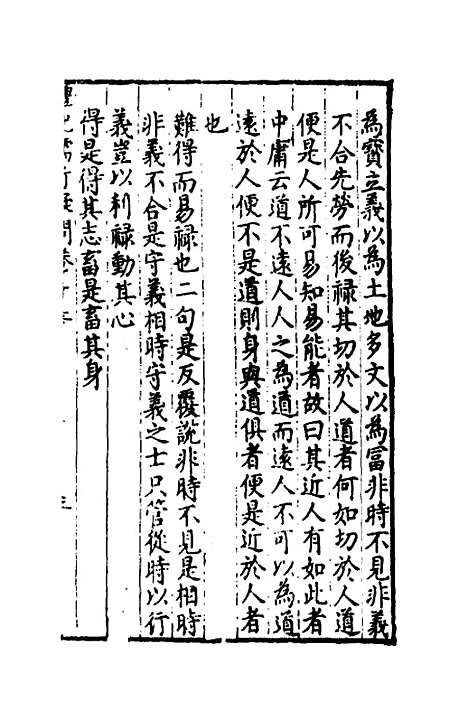 為寳立義以為土地多文以為富非時不見非義
不合先勞而後禄其切於人道者何如切於人道
便是人所可易知易能者故曰其近人有如此者
中庸云道不遠人人之為道而遠人不可以為道
遠於人便不是道則身與道俱者便是近於人者
也
難得而易禄也二句是反覆說非時不見是相時
非義不合是守義相時守義之士只管從時以行
義豈以利禄動其心
得是得其志畜是畜其身